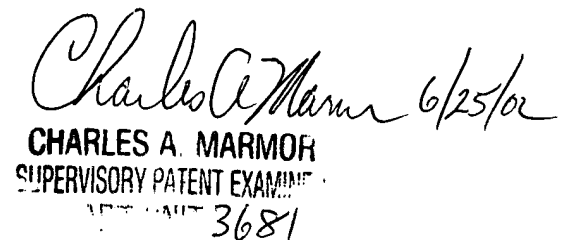 Charles A Marmor 6/25/02
CHARLES A. MARMOR
SUPERVISORY PATENT EXAMINER
ART UNIT 3681